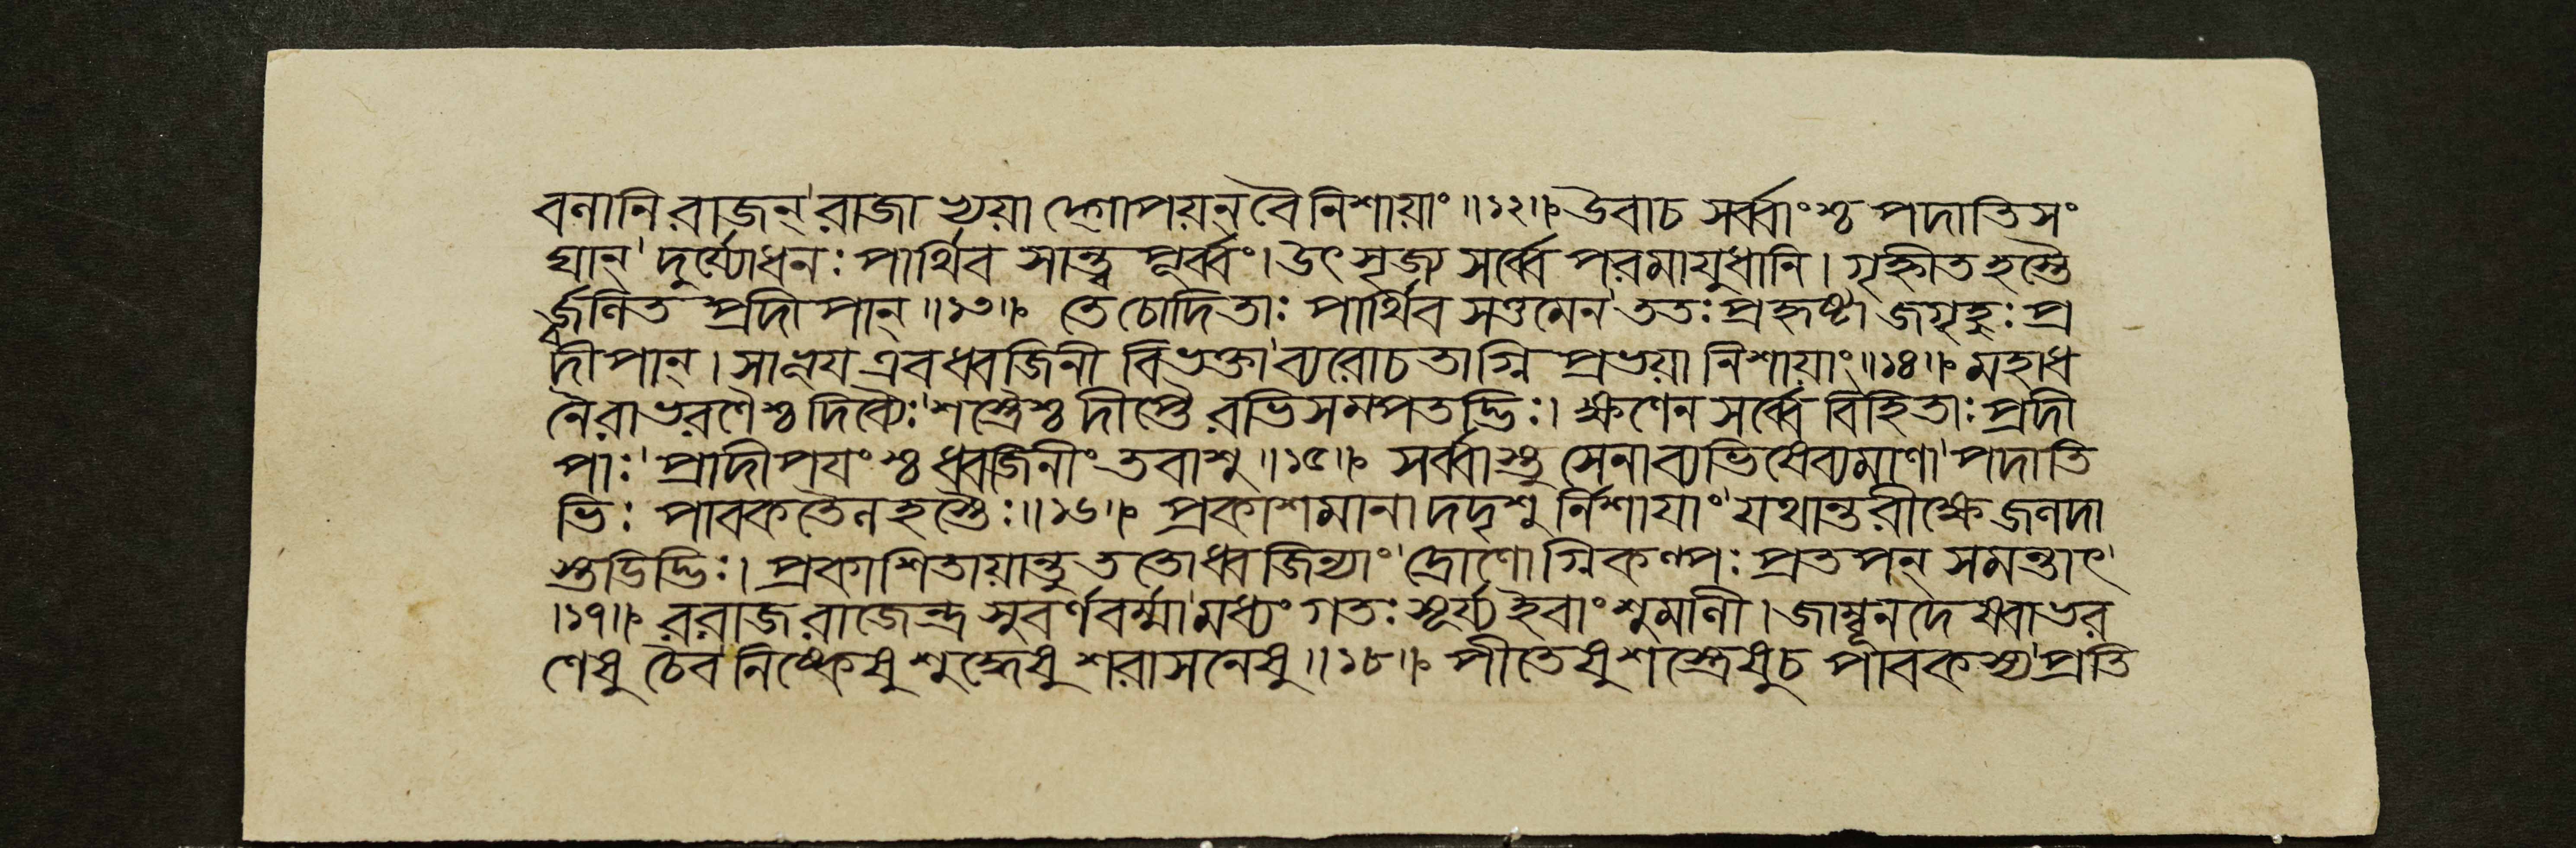 বনানি রাজন্ রাজা খয়া গোপয়ন্ বৈ নিশায়াং॥১২॥ উবাচ সর্ব্বাংশ্চ পদাতিসং
ঘান্ দুর্য্যোধনঃ পার্থিব সান্ত্বপূর্ব্বং। উৎসৃজ্য সর্ব্বে পরমায়ুধানি। গৃহ্নীত হস্তৈ
র্জ্বলিত প্রদীপান্॥১৩॥ তে চোদিতাঃ পার্থিব সত্তমেন ততঃ প্রহৃষ্টা জগৃহুঃ প্র
দীপান্। সা ভূয় এব ধ্বজিনী বিভক্তা ব্যরোচতাগ্নি প্রভয়া নিশায়াং॥১৪॥ মহাধ
নৈরাভরণৈশ্চ দিব্যৈঃ শস্ত্রৈশ্চ দীপ্তৈ রভিসম্পতদ্ভিঃ। ক্ষণেন সর্ব্বে বিহিতাঃ প্রদী
পাঃ প্রাদীপয়ংশ্চ ধ্বজিনীং তবাশু॥১৫॥ সর্ব্বাস্তু সেনা ব্যভিষেব্যমাণা পদাতি
ভিঃ পাবকতৈলহস্তৈঃ॥১৬॥ প্রকাশমানা দদৃশু র্নিশায়াং যথান্তরীক্ষে জলদা
স্তডিদ্ভিঃ। প্রকাশিতায়ান্তু ততো ধ্বজিন্যাং দ্রোণোগ্নিকল্পঃ প্রতপন্ সমন্তাৎ
।১৭॥ ররাজ রাজেন্দ্র সুবর্ণবর্ম্মা মধ্যং গতঃ সূর্য্য ইবাংশুমালী। জাম্বূনদেষ্বাভর
ণেষু চৈব নিষ্কেষু শুদ্ধেষু শরাসনেষু॥১৮॥ পীতেষু শস্ত্রেষু চ পাবকস্য প্রতি